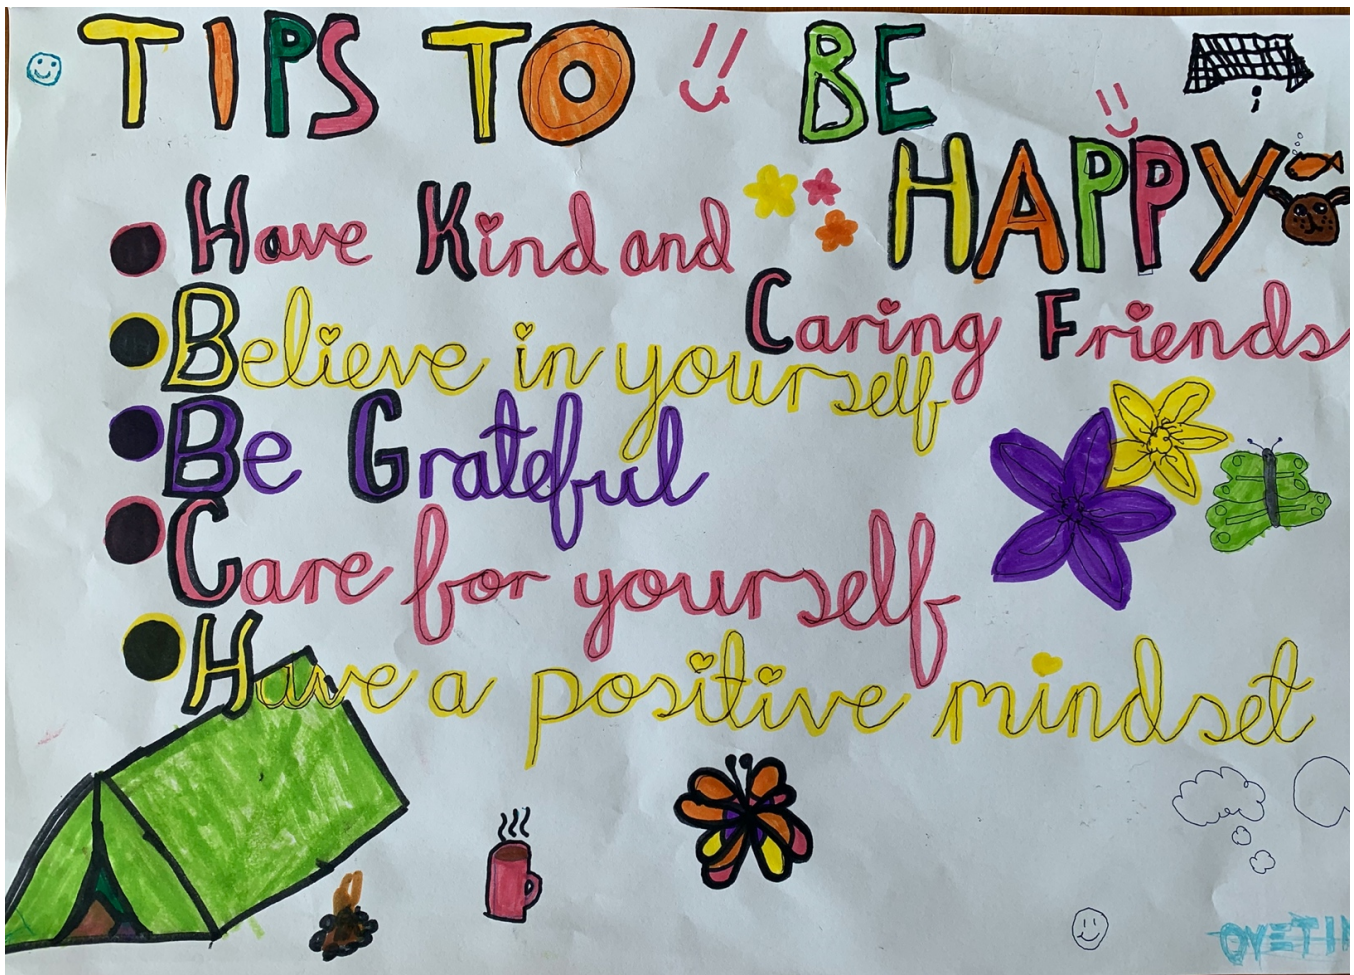 TIPS TO BE
HAPPY
Have Kind and
Caring Friends
Believe in yourself
Be Grateful
Care for yourself
Have a positive mindset